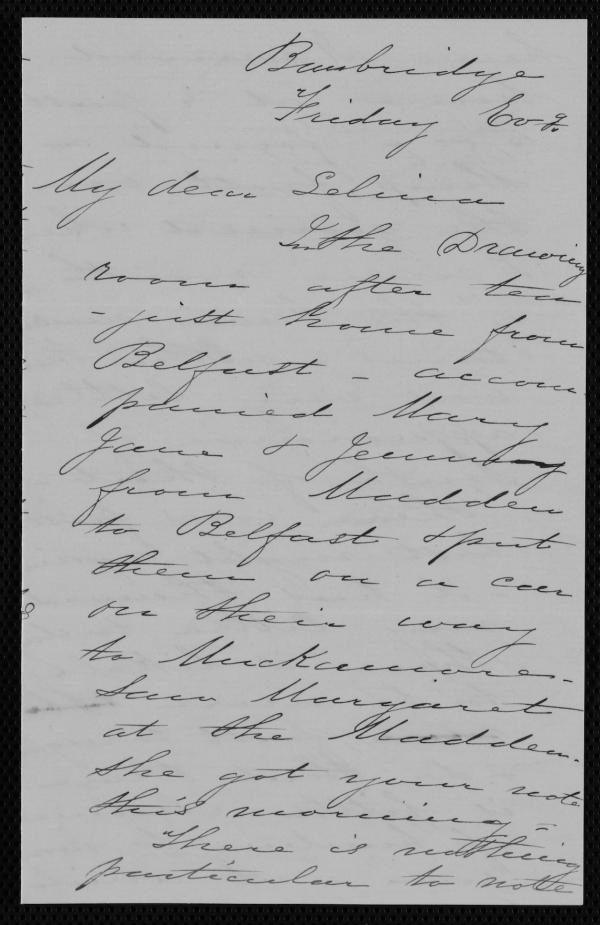 Banbridge
Friday Evg.
My dear Selina
In the Drawing
room after tea
- just home from
Belfast - accom
panied Mary
Jane & Jenny
from Madden
to Belfast & put
them on a car
on their way
to Muckamore -
Saw Margaret
at the Madden.
She got your note
this morning -
There is nothing
particular to note